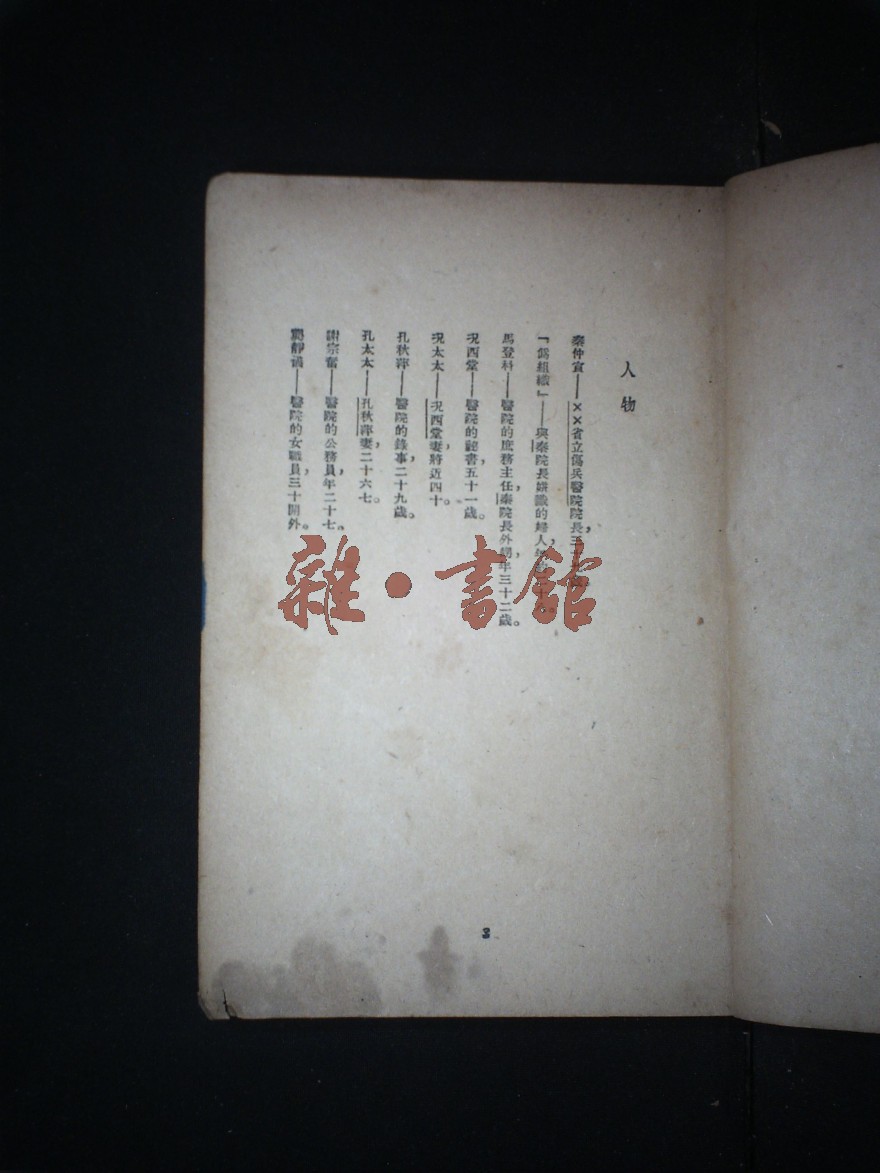 人物
秦仲宣——××省立傷兵醫院院長，三十
『僞組織』——與秦院長姘識的婦人，
馬登科——醫院的庶務主任，秦院長外甥，年三十二歲。
况西堂——醫院的祕書，五十一歲。
况太太——况西堂妻，將近四十。
孔秋萍——醫院的錄事，二十九歲。
孔太太——孔秋萍妻，二十六七。
謝宗奮——醫院的公務員，年二十七。
靜——醫院的女職員，三十開外。
雜·書館
3